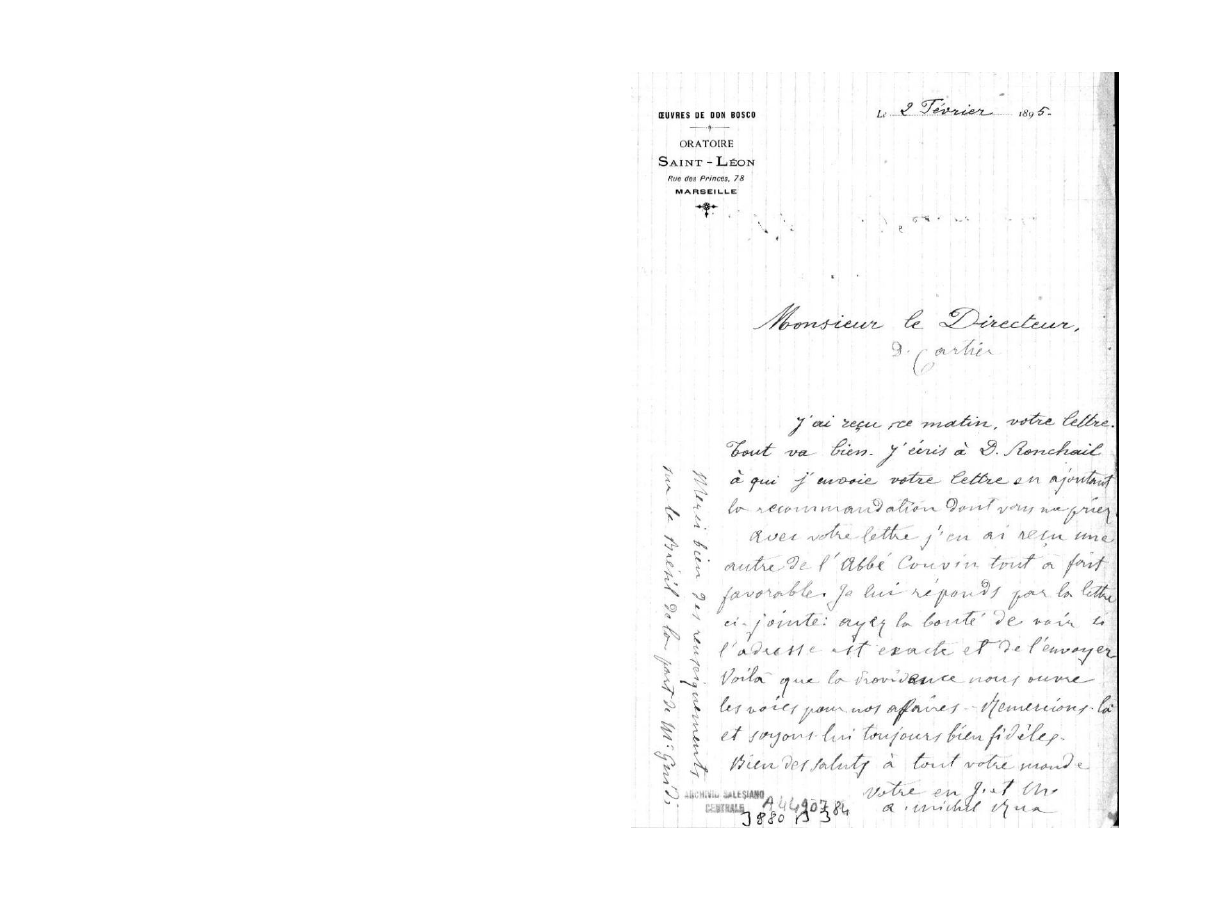 ŒUVRES DE DON BOSCO
ORATOIRE
SAINT-LÉON
Rue des Princes, 78
MARSEILLE
Le 2 Février 1895.
Monsieur le Directeur,
D. Cartier
J'ai reçu ce matin, votre lettre.
Tout va bien. J'écris à D. Ronchail
à qui j'envoie votre lettre en ajoutant
la recommandation dont vous me priez.
Avec votre lettre j'en ai reçu une
autre de l'Abbé Couvin tout à fait
favorable. Je lui réponds par la lettre
ci-jointe: ayez la bonté de voir si
l'adresse est exacte et de l'envoyer
Voilà que la Providence nous ouvre
les voies pour nos affaires - Remercions-la
et soyons-lui toujours bien fidèles.
Bien des saluts à tout votre monde
Votre en J. et M.
a. Michel Rua
Merci bien des renseignements
sur le Brésil de la part de Mr
ARCHIVIO SALESIANO
CENTRALE
A4490784
3880 B 3